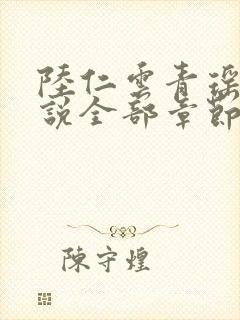 陸仁雲青瑶
說全部章節
陳守煌